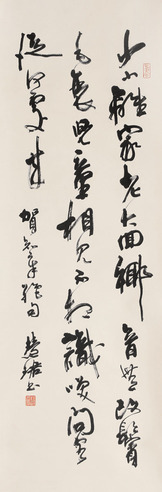 少小離家老大回鄉音無改鬢
毛衰兒童相見不相識笑問客
從何處來 賀知章絕句 慧珺書